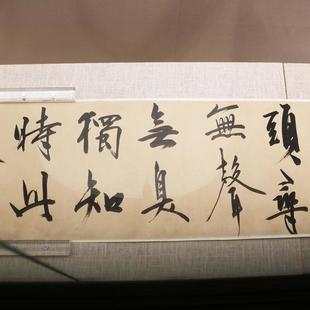 頭尋
無聲
無臭
獨知
時此